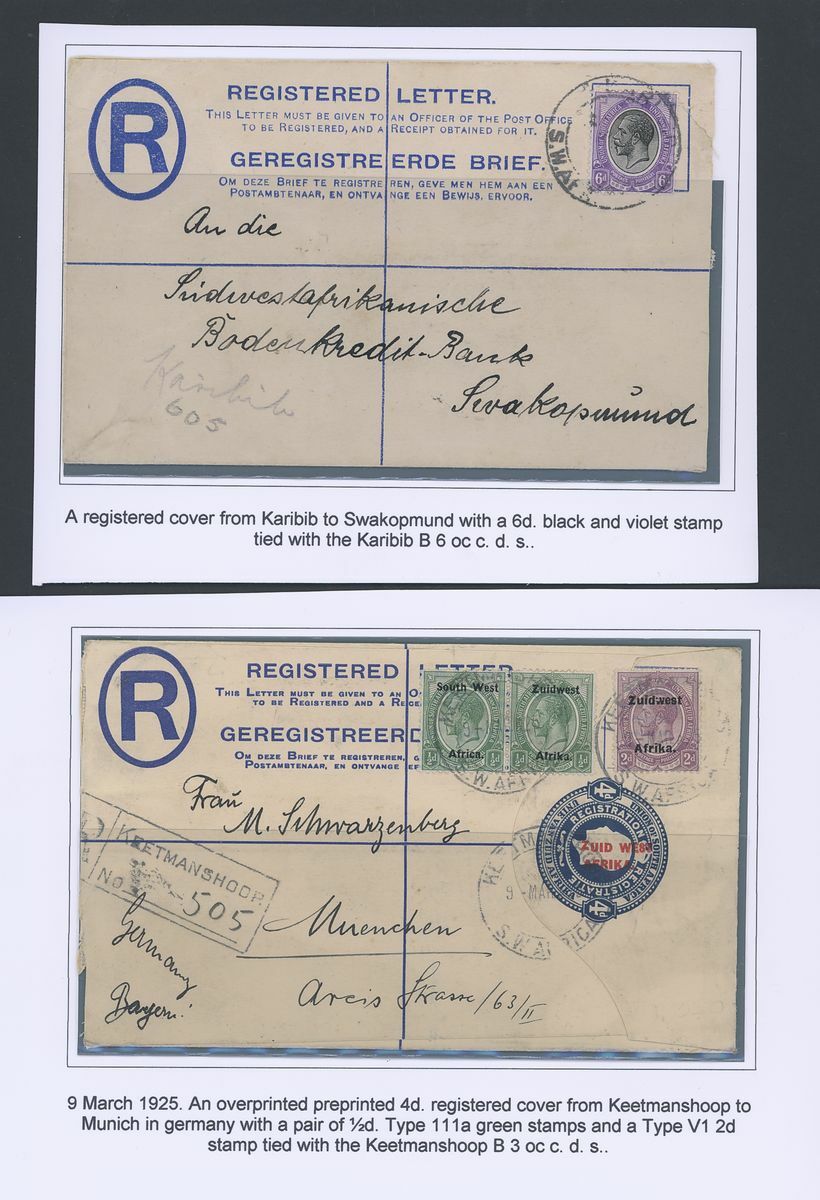 R
REGISTERED LETTER.
THIS LETTER MUST BE GIVEN TO AN OFFICER OF THE POST OFFICE
TO BE REGISTERED, AND A RECEIPT OBTAINED FOR IT.
GEREGISTREERDE BRIEF.
OM DEZE BRIEF TE REGISTREREN, GEVE MEN HEM AAN EEN
POSTAMBTENAAR, EN ONTVANGE EEN BEWIJS, ERVOOR.
S.W.AF
6d 6d
An die
Südwestafrikanische
Bodenkredit-Bank
Swakopmund
Karibib
605
A registered cover from Karibib to Swakopmund with a 6d. black and violet stamp
tied with the Karibib B 6 oc c. d. s..
R
REGISTERED LETTER
THIS LETTER MUST BE GIVEN TO AN O
TO BE REGISTERED AND A RECE
GEREGISTREERD
OM DEZE BRIEF TE REGISTREREN,
POSTAMBTENAAR, EN ONTVANGE
South West
Africa.
Zuidwest
Afrika.
Zuidwest
Afrika.
½d ½d ½d ½d
2d 2d
S.W.AFRI
S.W.AFRICA
Frau
M. Schwarzenberg
KEETMANSHOOP.
No 505
4d
REGISTRATION
ZUID WEST
AFRIKA
REGISTRATIE
4d
KEETM
9 MAR
S.W.AFRICA
Muenchen
Germany
Bayern!
Arcis Strasse/63/II
9 March 1925. An overprinted preprinted 4d. registered cover from Keetmanshoop to
Munich in germany with a pair of ½d. Type 111a green stamps and a Type V1 2d
stamp tied with the Keetmanshoop B 3 oc c. d. s..